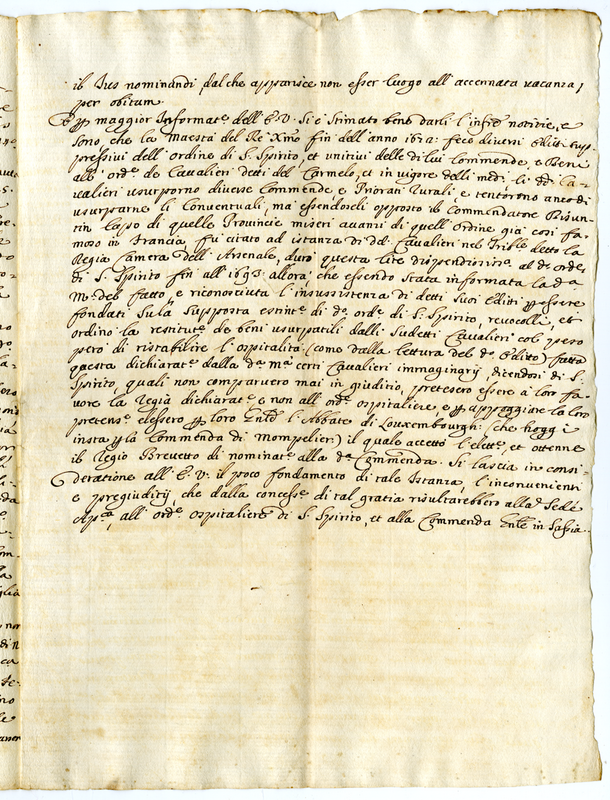 il Ius nominandi, dal che apparisce non esser luogo all' accennata vacanza
per obitum.
E per maggior Informat.e dell' E.V. si è stimato bene darli l'infr.e notitie, e
sono che la Maestà del Re Xmo fin dell' anno 1672: fece diversi editti sup-
pressivi dell' ordine di S. Spirito, et unitivi delle di lui Commende, e Beni
all' ord.e de Cavalieri detti del Carmelo, et in vigore delli med.i li dd. Ca-
valieri usurporno diverse Commende, e Priorati rurali, e tentorono anco di
usurparne li Conventuali, ma essendoseli opposto il Commendatore
in lapso di quelle Provincie miseri avanzi di quell' ordine già così fa-
moso in Francia, fu citato ad istanza di dd. Cavalieri nel Trib.le detto la
Regia Camera dell' Arsenale, durò questa lite al d.o ord.e
di S. Spirito fin all' 1693: allora, che essendo stata informata la d.a
M.tà del fatto, e riconosciuta l'insussistenza di detti suoi editti per essere
fondati su la supposta estint.e di d.o ord.e di S. Spirito, revocolli, et
ordinò la restitut.e de beni usurpatili dalli sudetti Cavalieri col peso
però di ristabilire l'ospitalità (come dalla lettura del d.o editto) fatta
questa dichiarat.e dalla d.a M.tà certi Cavalieri immaginarij, dicendosi di S.
Spirito, quali non comparvero mai in giuditio, pretesero essere à lor fa-
vore la Regià dichiarat.e e non all' ord.e ospitaliere, e per appoggiare la lor
pretens.e elessero per loro Gnle l'Abbate di Louxembourgh: (che hoggi
insta per la Commenda di Mompelier) il quale accettò l'elett.e, et ottenne
il Regio Brevetto di nominat.e alla d.a Commenda. Si lascia in consi-
deratione all' E.V. il poco fondamento di tale Istanza, l'inconvenienti
e pregiuditij, che dalla concess.e di tal gratia risultarebbero alla Sede
Ap.ca, all' ord.e ospitaliere di S. Spirito, et alla Commenda Gnle in Sassia.